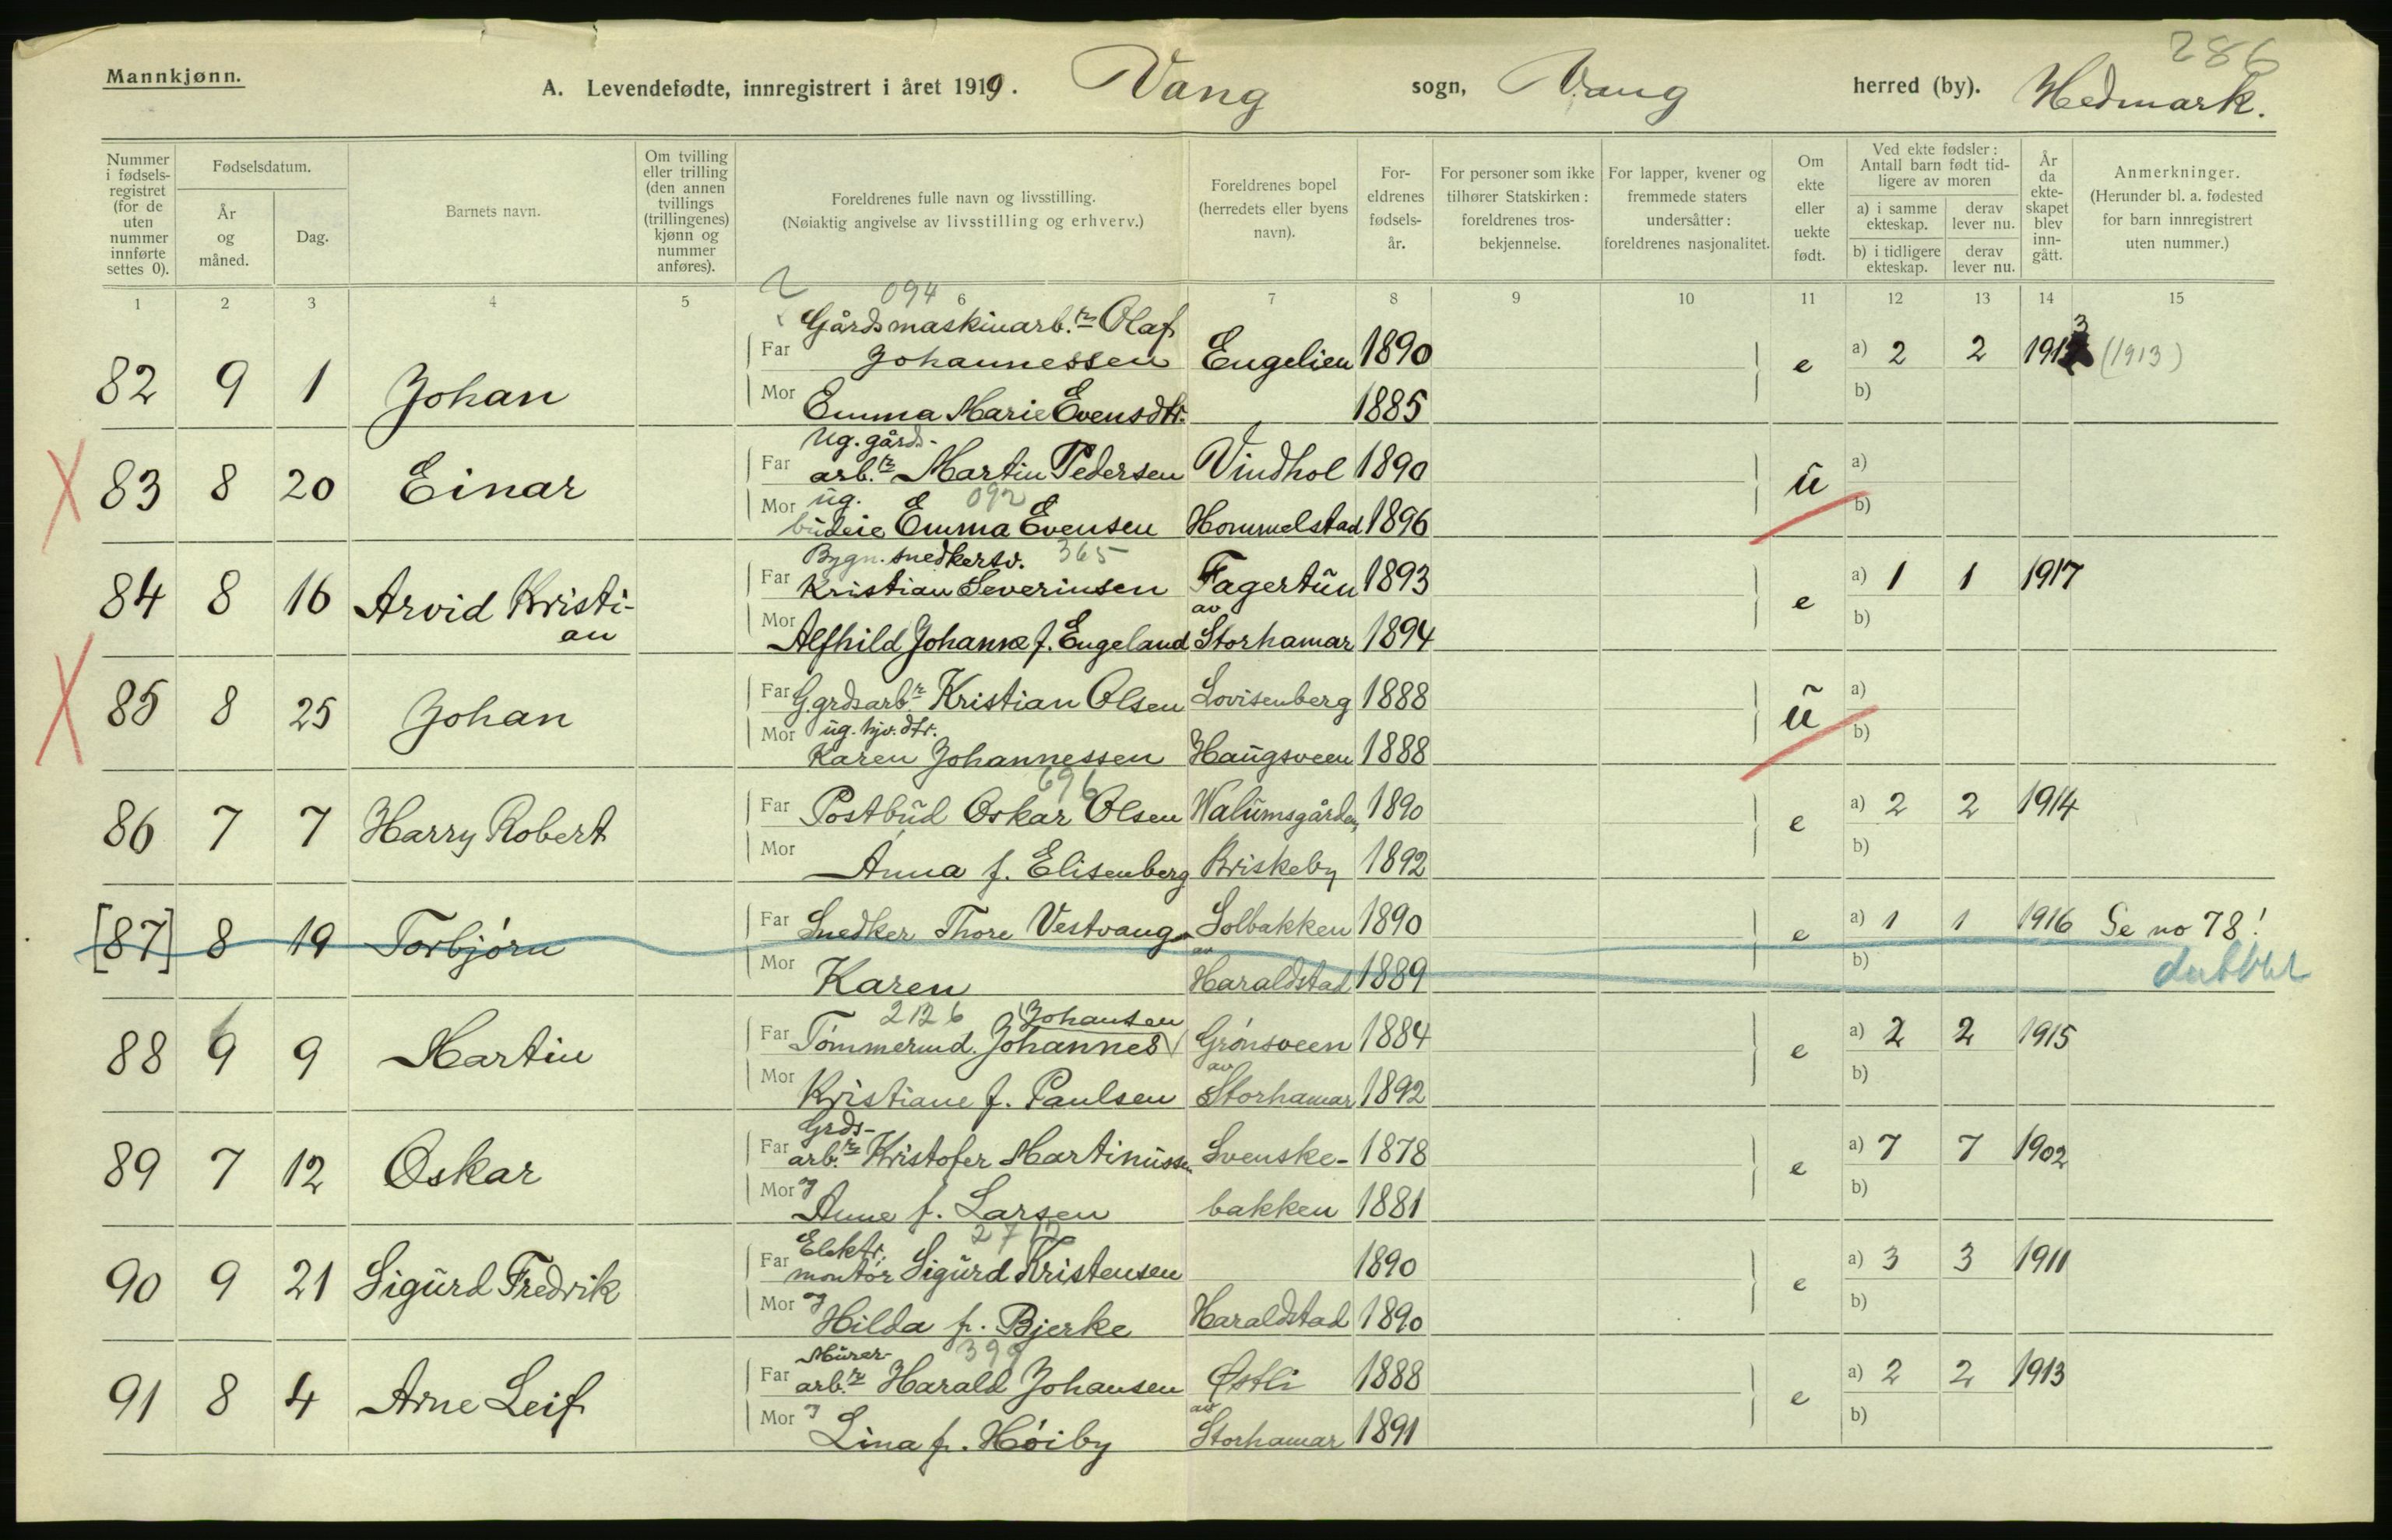 286
Mannkjønn.
A. Levendefødte, innregistrert i året 1919. Vang sogn, Vang herred (by). Hedmark.
Nummer i fødsels-registret (for de uten nummer innførte settes 0).
Fødselsdatum.
År og måned.
Dag.
Barnets navn.
Om tvilling eller trilling (den annen tvillings (trillingenes) kjønn og nummer anføres).
Foreldrenes fulle navn og livsstilling.
(Nøiaktig angivelse av livsstilling og erhverv.)
Foreldrenes bopel (herredets eller byens navn).
For-eldrenes fødsels-år.
For personer som ikke tilhører Statskirken: foreldrenes tros-bekjennelse.
For lapper, kvener og fremmede staters undersåtter: foreldrenes nasjonalitet.
Om ekte eller uekte født.
Ved ekte fødsler: Antall barn født tid-ligere av moren
a) i samme ekteskap.
derav lever nu.
b) i tidligere ekteskap.
derav lever nu.
År da ekte-skapet blev inn-gått.
Anmerkninger.
(Herunder bl. a. fødested for barn innregistrert uten nummer.)
1 2 3 4 5 6 7 8 9 10 11 12 13 14 15
094
Gårdsmaskinarb.r Olaf
82 9 1 Johan Far Johannessen Engelien 1890 e a) 2 2 1913 (1913)
Mor Emma Marie Evensdtr. 1885 b)
Ug. gårds-
83 8 20 Einar Far arb.r Martin Pedersen Vindhol 1890 ŭ a)
ug. 092
Mor budeie Emma Evensen Hommelstad 1896 b)
Bygn. snedkersv. 365
84 8 16 Arvid Kristi-an Far Kristian Severinsen Fagertŭn 1893 e a) 1 1 1917
Mor Alfhild Johanne f. Engeland av Storhamar 1894 b)
85 8 25 Johan Far G.grdsarb.r Kristian Olsen Lovisenberg 1888 ŭ a)
Mor ug. hjv. dtr.
Karen Johannessen Haŭgsveen 1888 b)
696
86 7 7 Harry Robert Far Postbŭd Oskar Olsen Walŭmsgården 1890 e a) 2 2 1914
Mor Anna f. Elisenberg Briskeby 1892 b)
[87] 8 19 Torbjórn Far Snedker Thore Vestvang Solbakken 1890 e a) 1 1 1916 Se no 78!
Mor Karen av Haraldstad 1889 b) dubblet
2126 Johansen
88 9 9 Martin Far Tómmermd. Johannes Grónsveen 1884 e a) 2 2 1915
Mor Kristiane f. Paulsen av Storhamar 1892 b)
Grds-
89 7 12 Oskar Far arb.r Kristofer Martinŭssen Svenske- 1878 e a) 7 7 1902
Mor og Anne f. Larsen bakken 1881 b)
Elektr.
90 9 21 Sigŭrd Fredrik Far montór Sigŭrd Kristensen 1890 e a) 3 3 1911
Mor og Hilda f. Bjerke Haraldstad 1890 b)
Mŭrer-
91 8 4 Arne Leif Far arb.r Harald Johansen Østli 1888 e a) 2 2 1913
Mor og Lina f. Hóiby av Storhamar 1891 b)